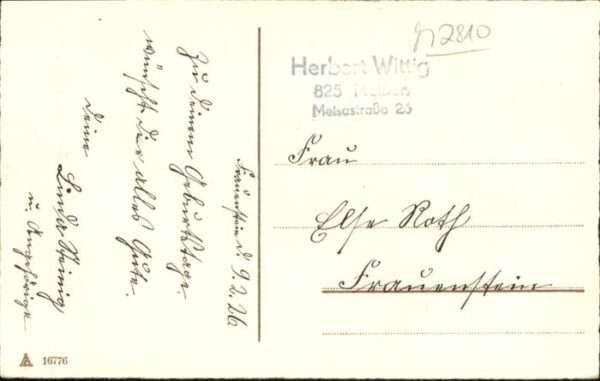 Frauenstein d. 9.2.26
Zu Deinem Geburtstage
wünscht Dir alles Gute.
Deine
Linda
u. Angehörige
2810
Herbert Wittig
825 Meißen
Meisastraße 25
Frau
Else Roth
Frauenstein
16776